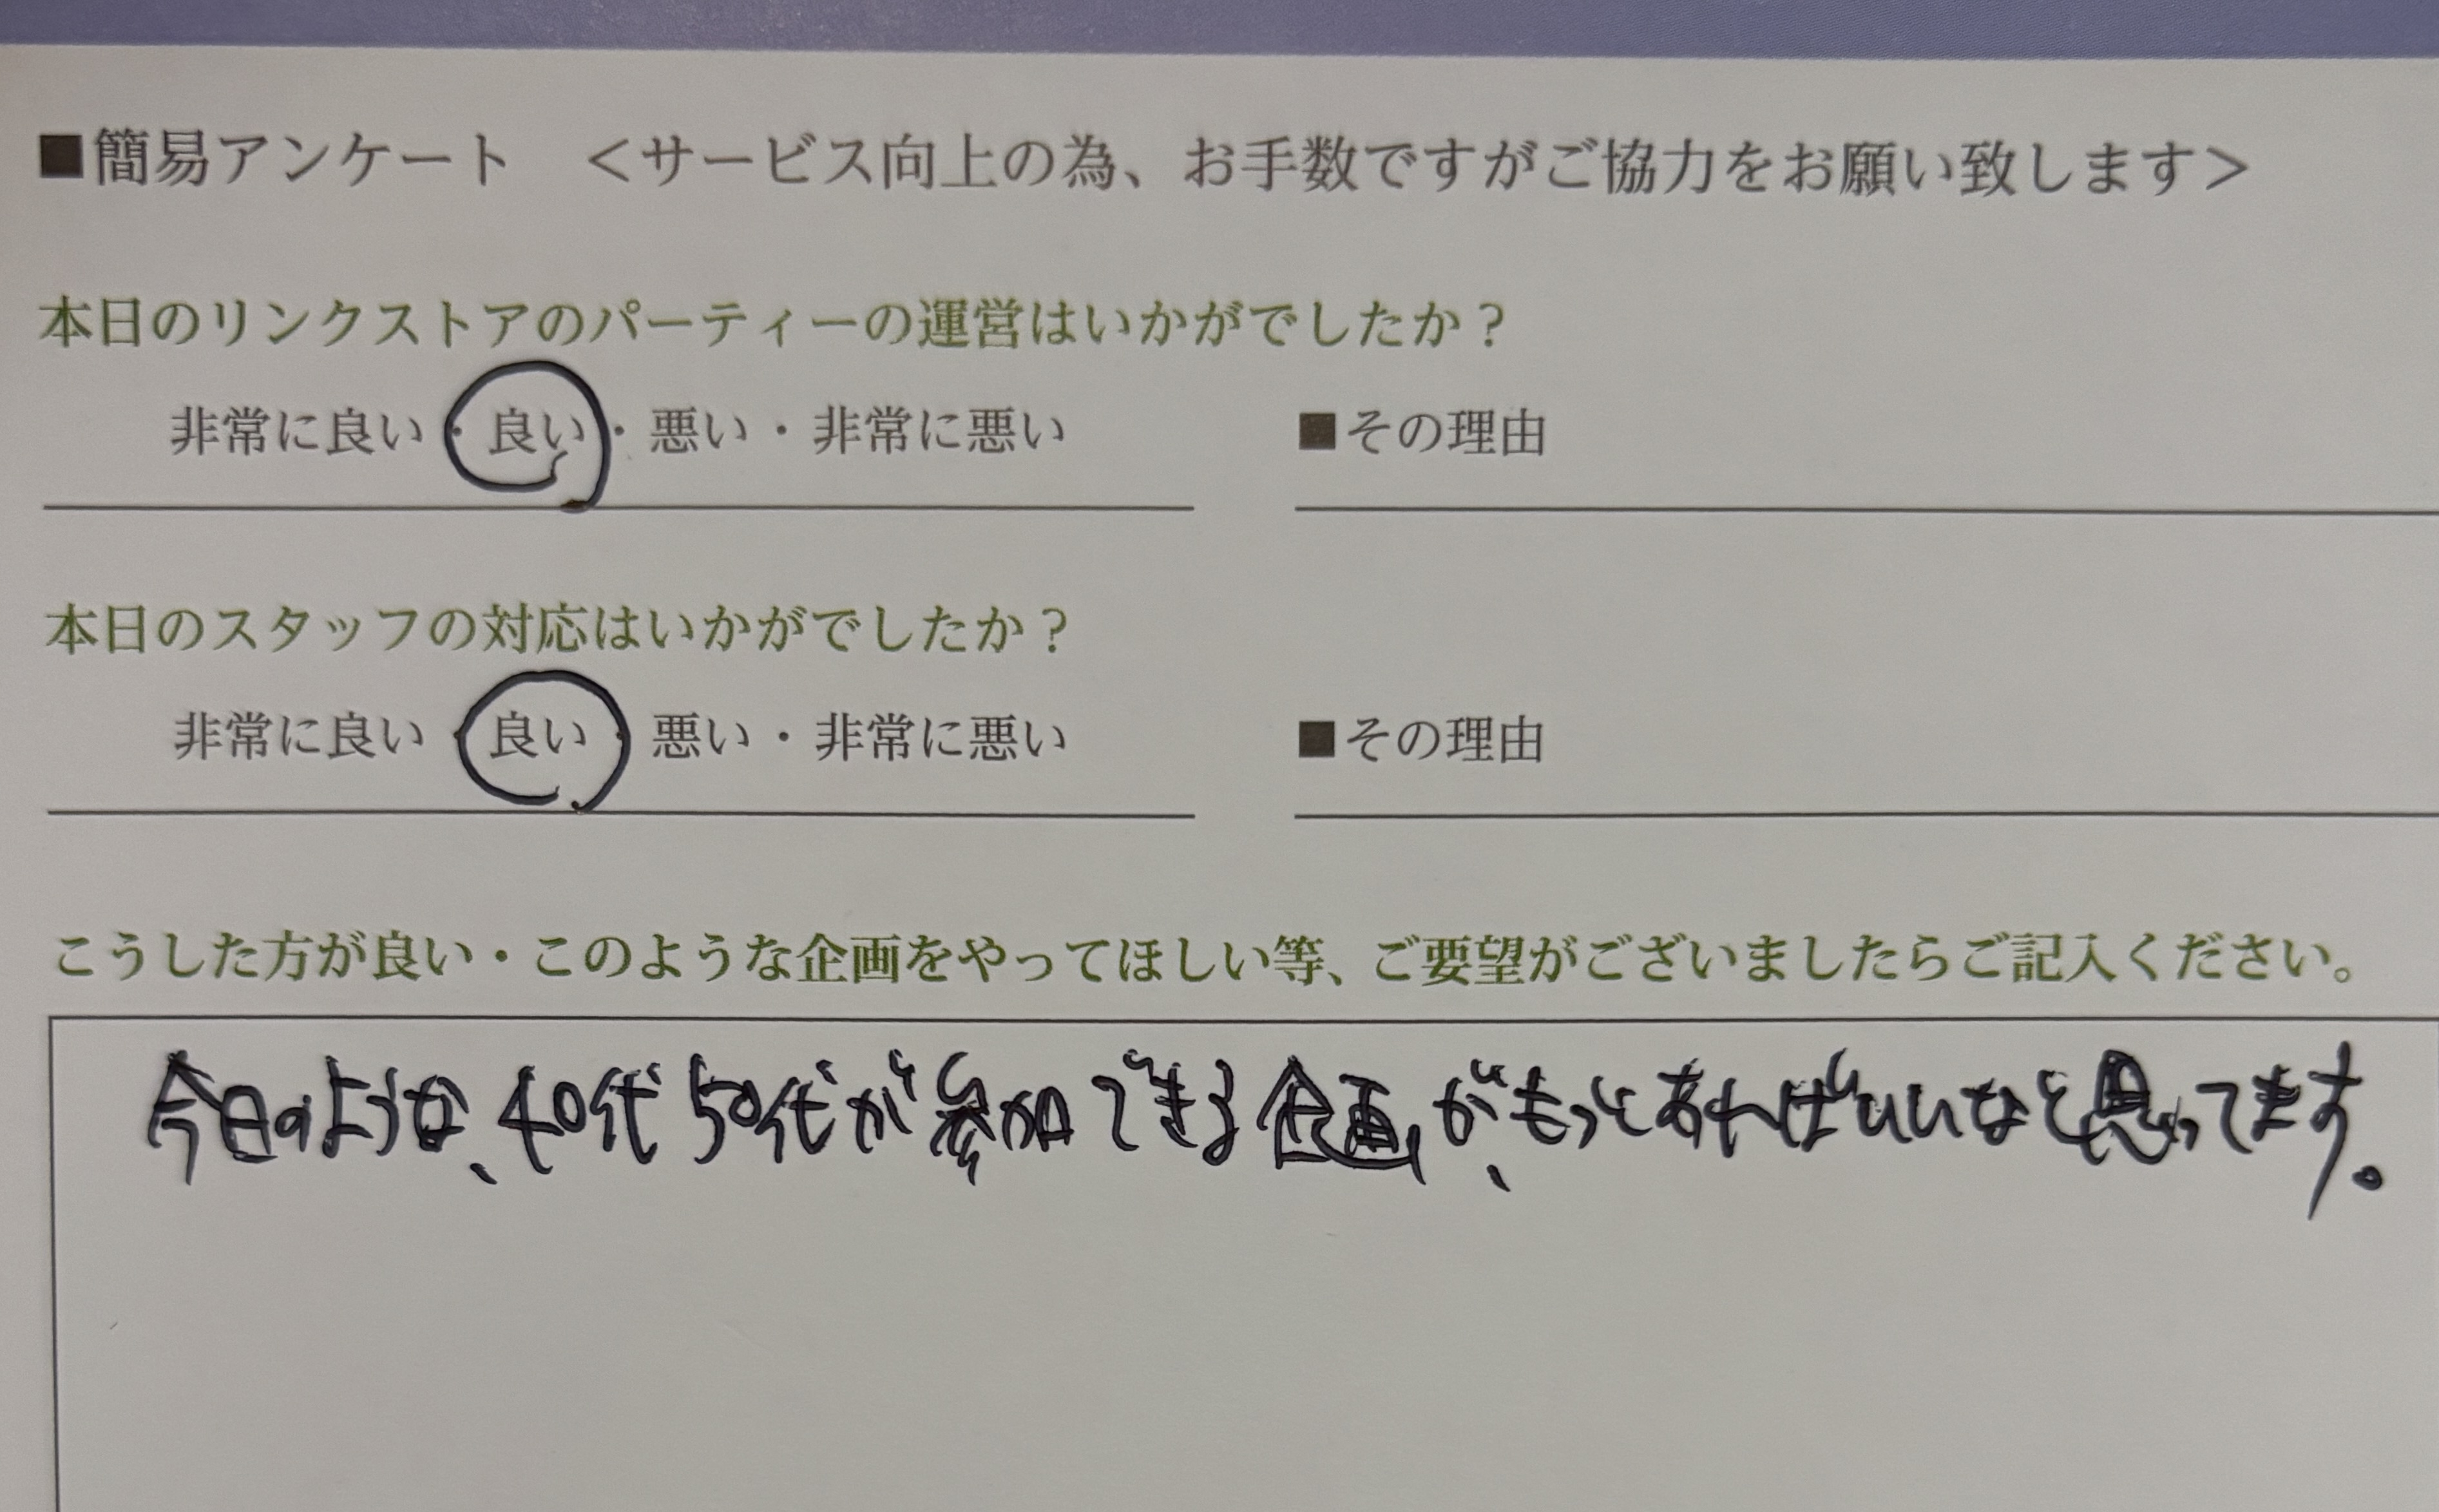 ■簡易アンケート　＜サービス向上の為、お手数ですがご協力をお願い致します＞
本日のリンクストアのパーティーの運営はいかがでしたか？
非常に良い・良い・悪い・非常に悪い　■その理由
本日のスタッフの対応はいかがでしたか？
非常に良い・良い・悪い・非常に悪い　■その理由
こうした方が良い・このような企画をやってほしい等、ご要望がございましたらご記入ください。
今日のような、40代50代が参加できる企画が、もっとあればいいなと思ってます。